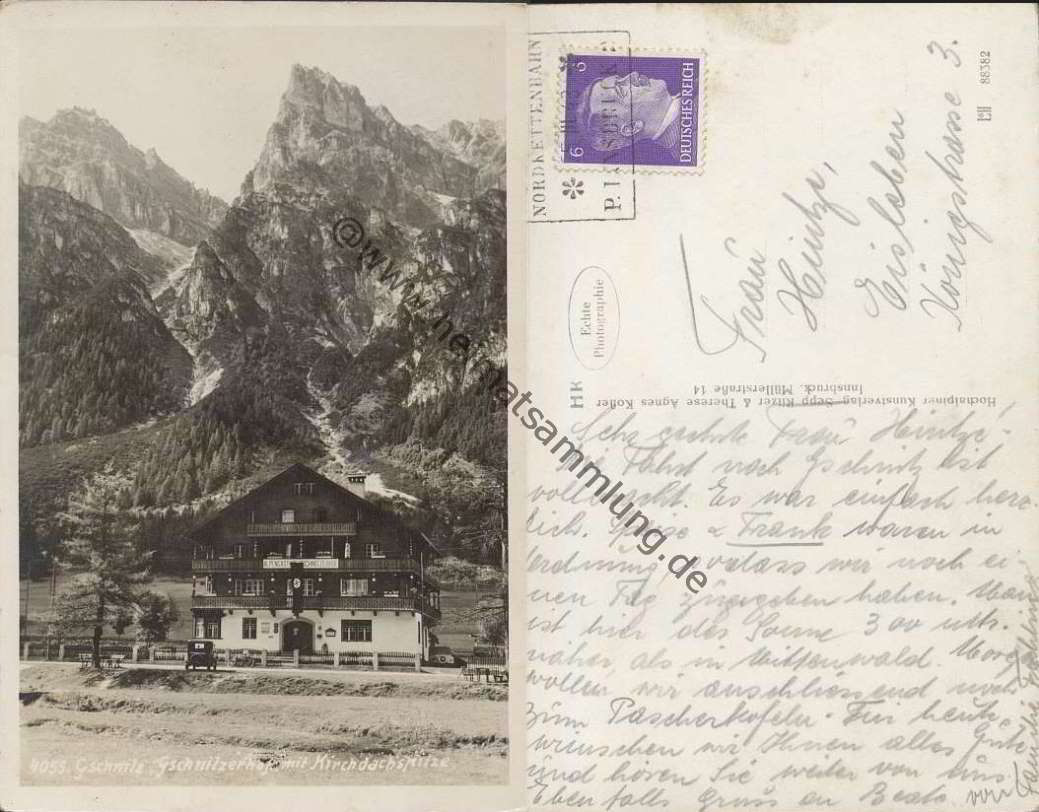 4055. Gschnitz, Gschnitzerhof mit Kirchdachspitze
@www.heimatsammlung.de
NORDKETTENBAHN
INNSBRUCK
6 6
DEUTSCHES REICH
Frau
Heintze,
Eisleben
Königstrasse 3.
88382
Echte
Photographie
HK
Hochalpiner Kunstverlag Sepp Ritzer & Therese Agnes Koller
Innsbruck, Müllerstraße 14
Sehr geehrte Frau Heintze!
Die Fahrt nach Gschnitz ist
vollbracht. Es war einfach herr
lich. & Frank waren in
Ordnung, sodass wir noch ei
nen Tag zugegeben haben. Man
ist hier der Sonne 300 mtr.
näher als in Mittenwald. Morg
wollen wir anschliessend noch
zum Patscherkofeln. Für heute
wünschen wir Ihnen alles Gute
und hören Sie weiter von uns.
Ebenfalls Gruss an Beate
von Familie